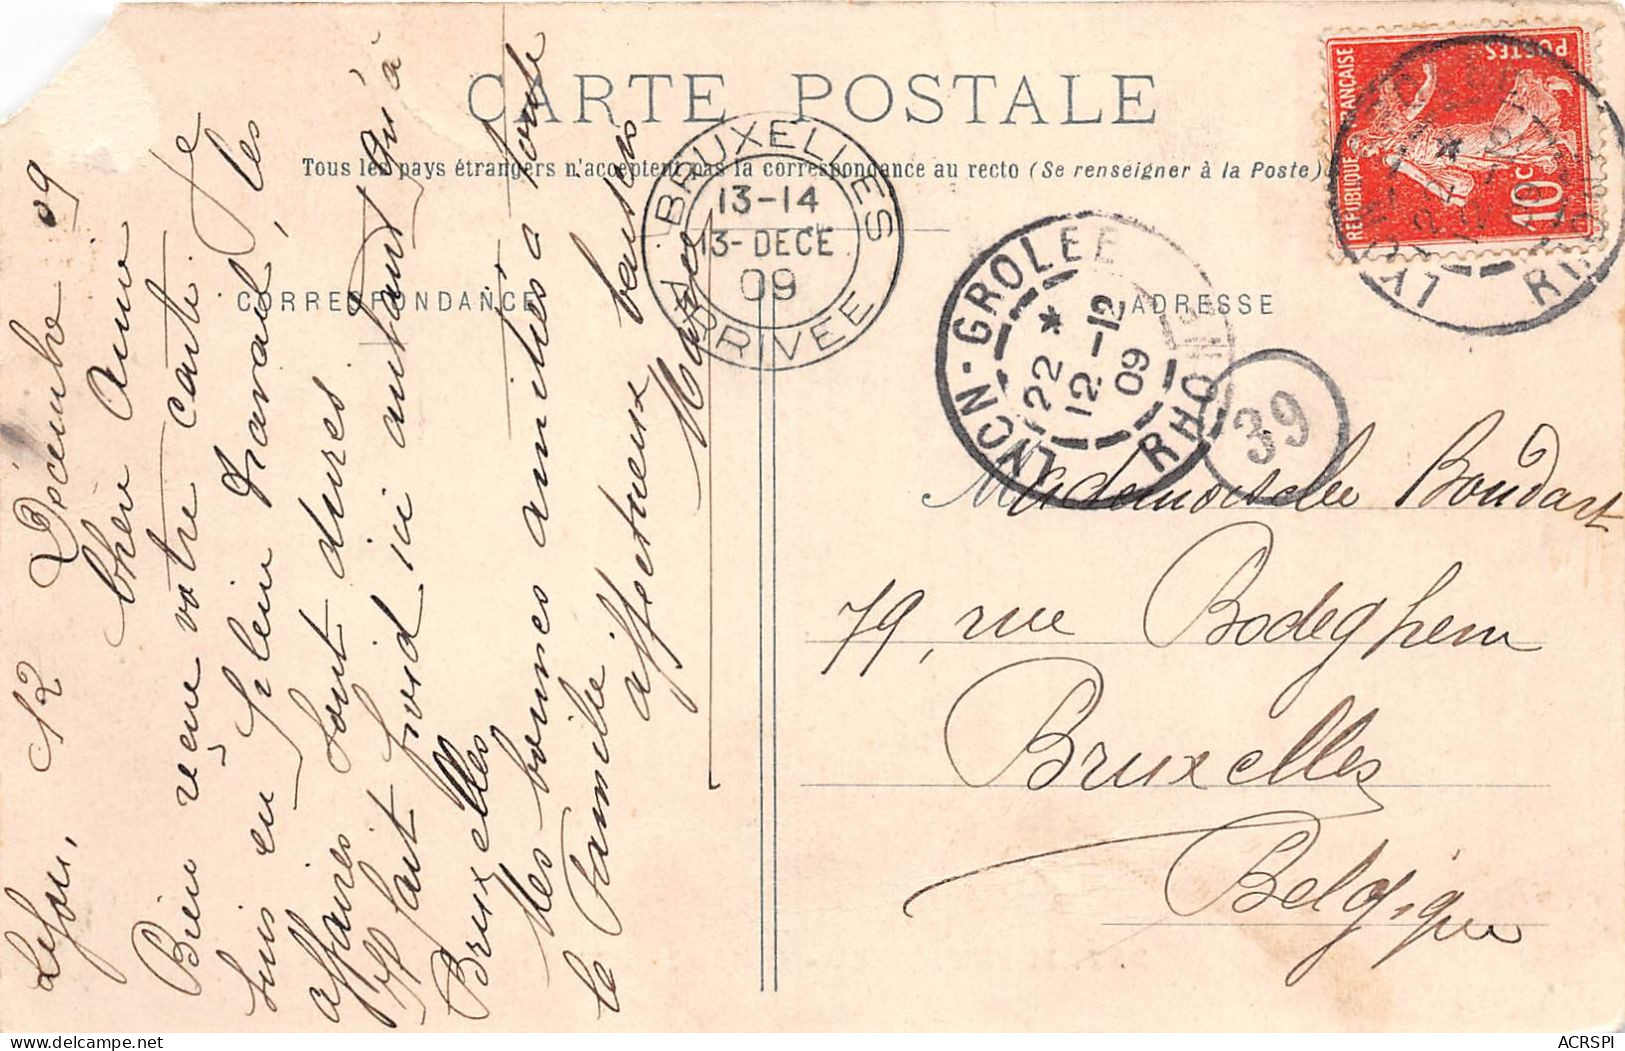 CARTE POSTALE
Tous les pays étrangers n'acceptent pas la correspondance au recto (Se renseigner à la Poste)
CORRESPONDANCE
ADRESSE
Lyon, 12 Décembre 09
Chère Amie
Bien reçu votre carte. Je
suis en plein travail, les
affaires sont dures
Il fait froid ici autant qu'à
Bruxelles
Mes bonnes amitiés à toute
la Famille
affectueux baisers
BRUXELLES
13-14
13-DECE
09
ARRIVEE
LYON-GROLEE
22 *
12-12
09
RHONE
39
REPUBLIQUE FRANÇAISE
POSTES
10c
LYON
RHONE
Mademoiselle Boudart
79, rue Bodeghem
Bruxelles
Belgique
ACRSPI